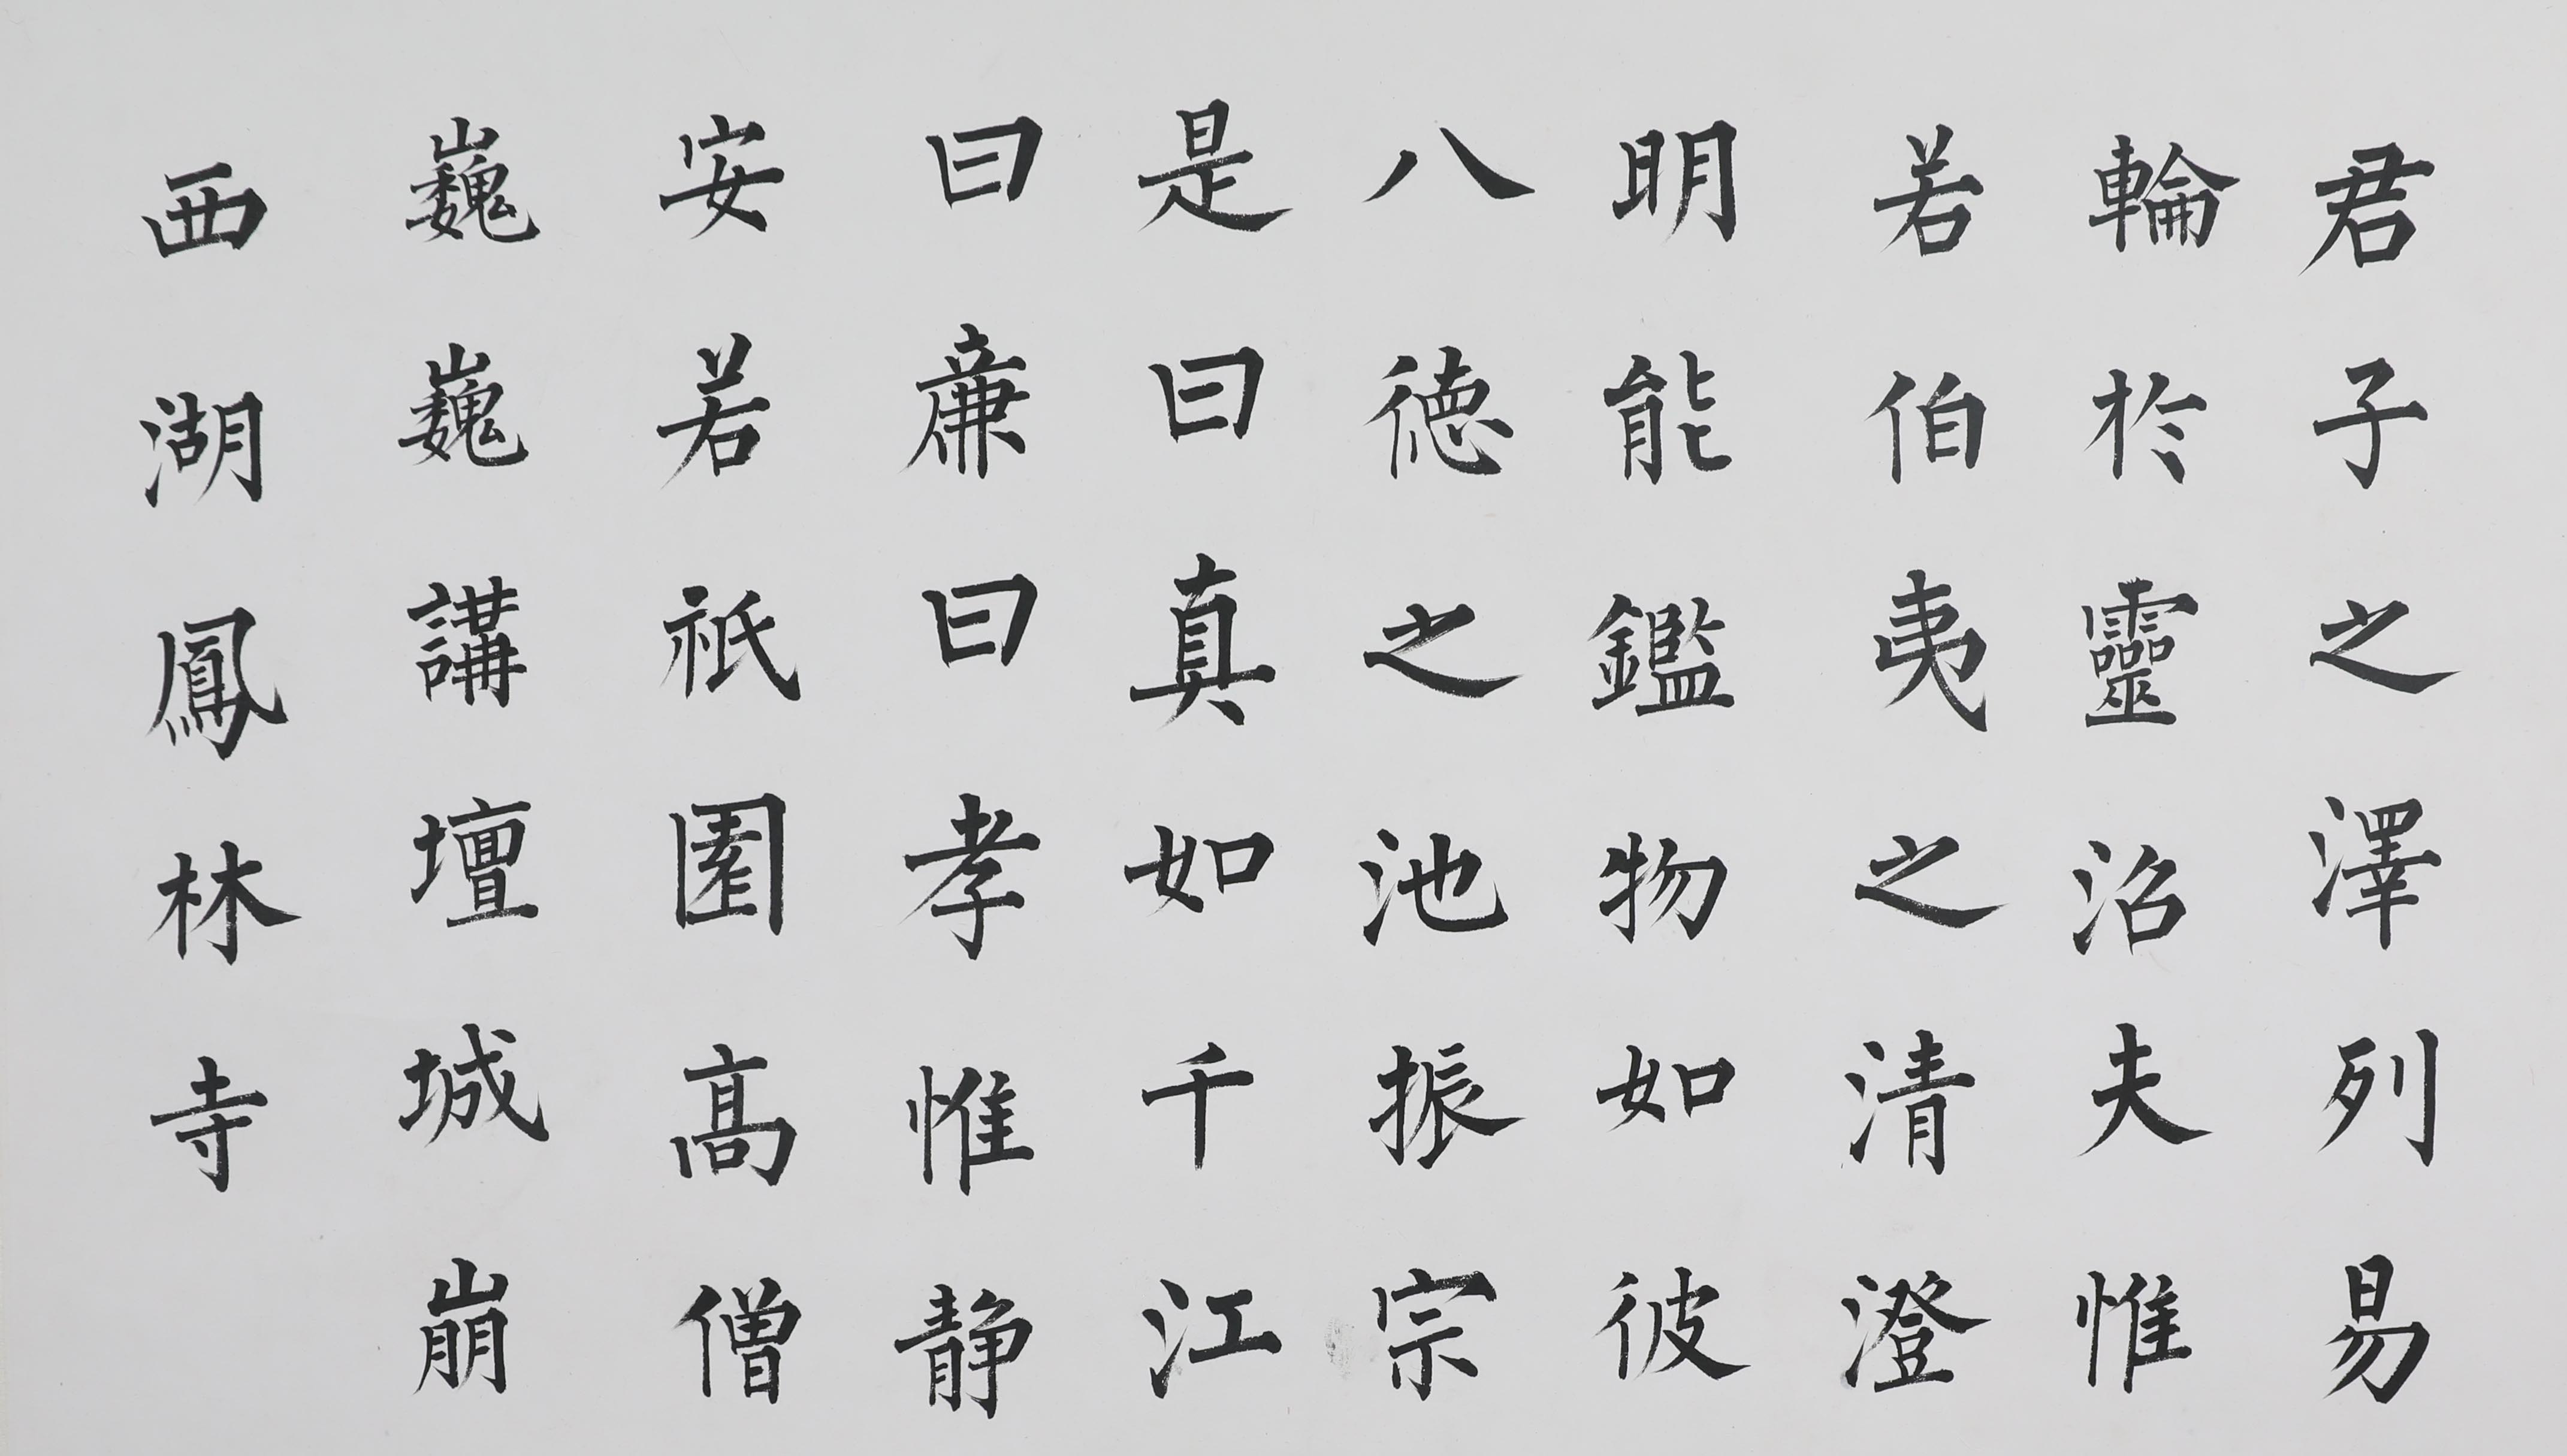 君子之澤列易
輪於靈沼夫惟
若伯夷之清澄
明能鑑物如彼
八德之池振宗
是曰真如千江
曰廉曰孝惟静
安若祇園高僧
巍巍講壇城崩
西湖鳳林寺